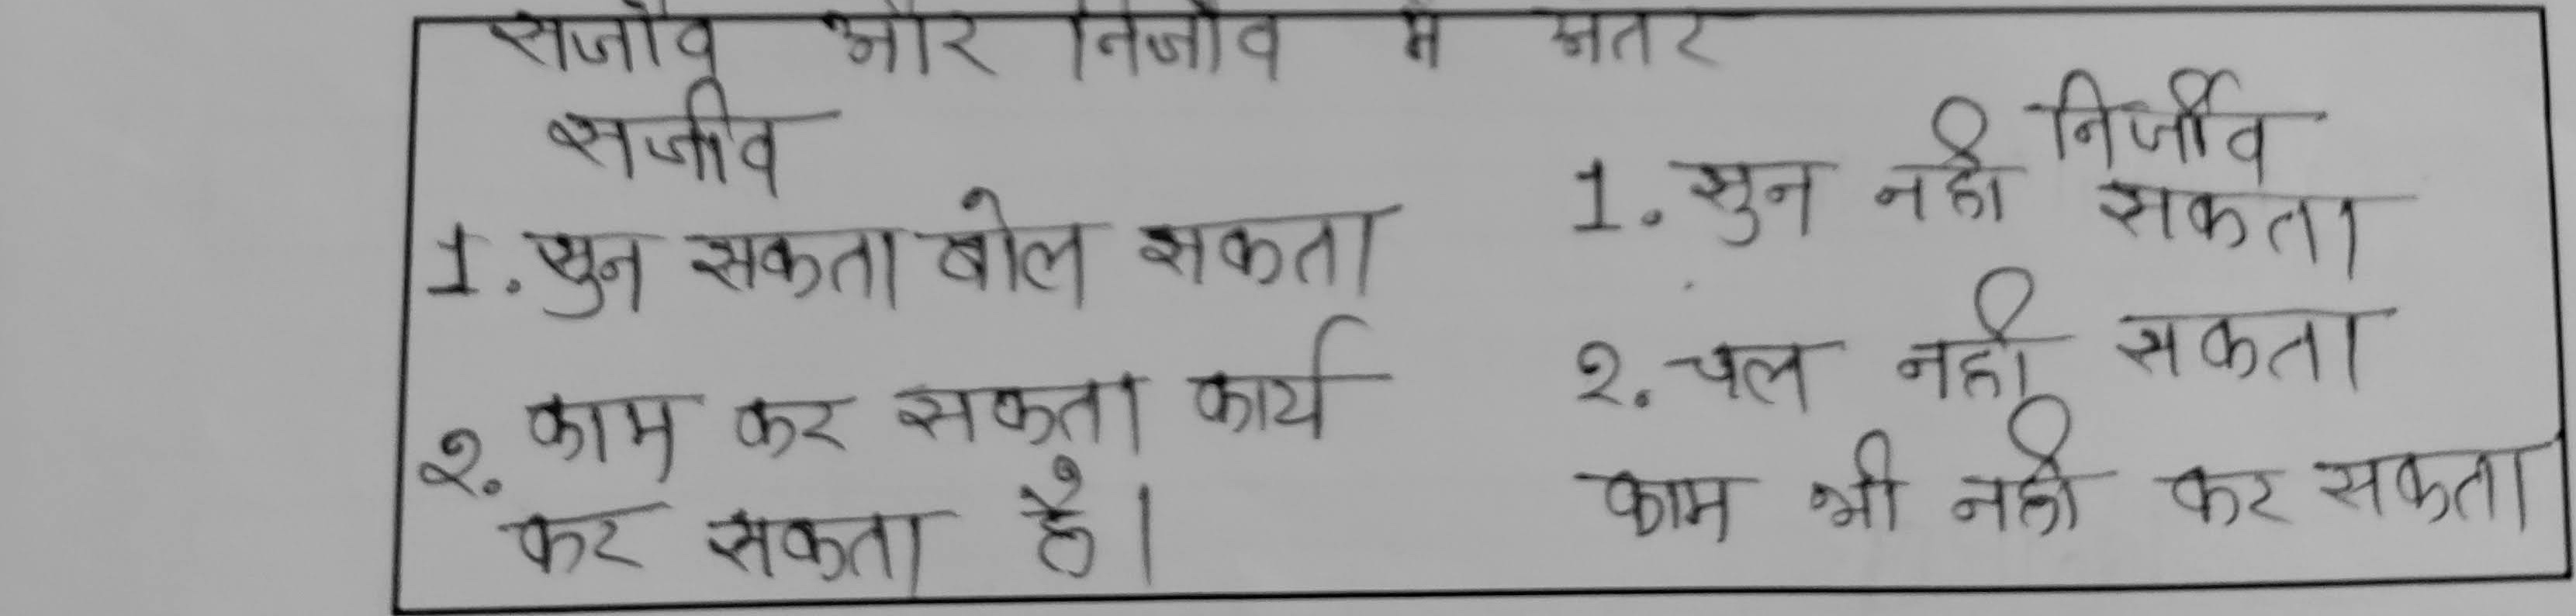 सजीव और निर्जीव में अंतर
सजीव
1. सुन सकता बोल सकता
२. काम कर सकता कार्य
कर सकता है।
निर्जीव
1. सुन नही सकता
२. चल नही सकता
काम भी नही कर सकता